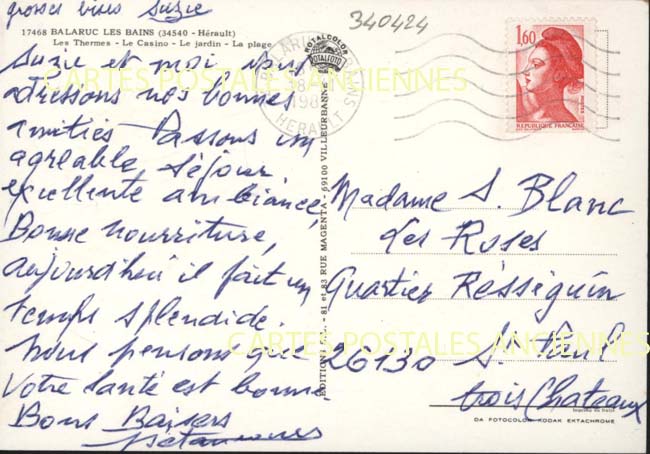 grosses bises Suzie
17468 BALARUC LES BAINS (34540 - Hérault)
Les Thermes - Le Casino - Le jardin - La plage
Suzie et moi, vous
adressons nos bonnes
amitiés Passons un
agréable séjour,
excellente ambiance,
Bonne nourriture,
aujourd'hui il fait un
temps splendide.
nous pensons que
votre santé est bonne
Bons Baisers
340424
ROTALCOLOR
ROTALFOTO
HERAULT
1.60
REPUBLIQUE FRANÇAISE
81 et 83 RUE MAGENTA - 69100 VILLEURBANNE
Madame S. Blanc
des Roses
Quartier Rességuin
26130 St Paul
trois Chateaux
Imprimé en Italie
DA FOTOCOLOR KODAK EKTACHROME
CARTES POSTALES ANCIENNES
CARTES POSTALES ANCIENNES